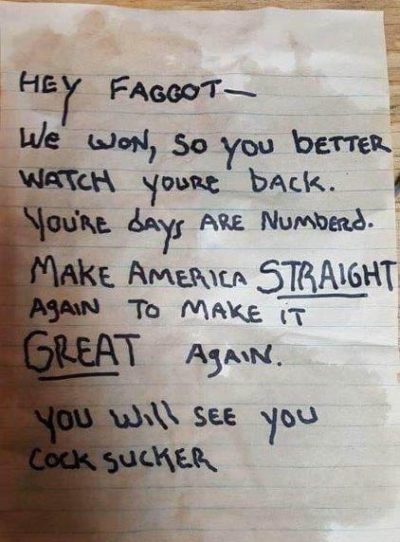 HEY FAGGOT—
We WON, So YOU bETTER
WATCH YOURE bACK.
YOU'RE dAYS ARE NUMbERd.
MAKE AMERICA STRAIGHT
AGAIN TO MAKE iT
GREAT AgAiN.
YOU Will SEE YOU
COCK SUCKER